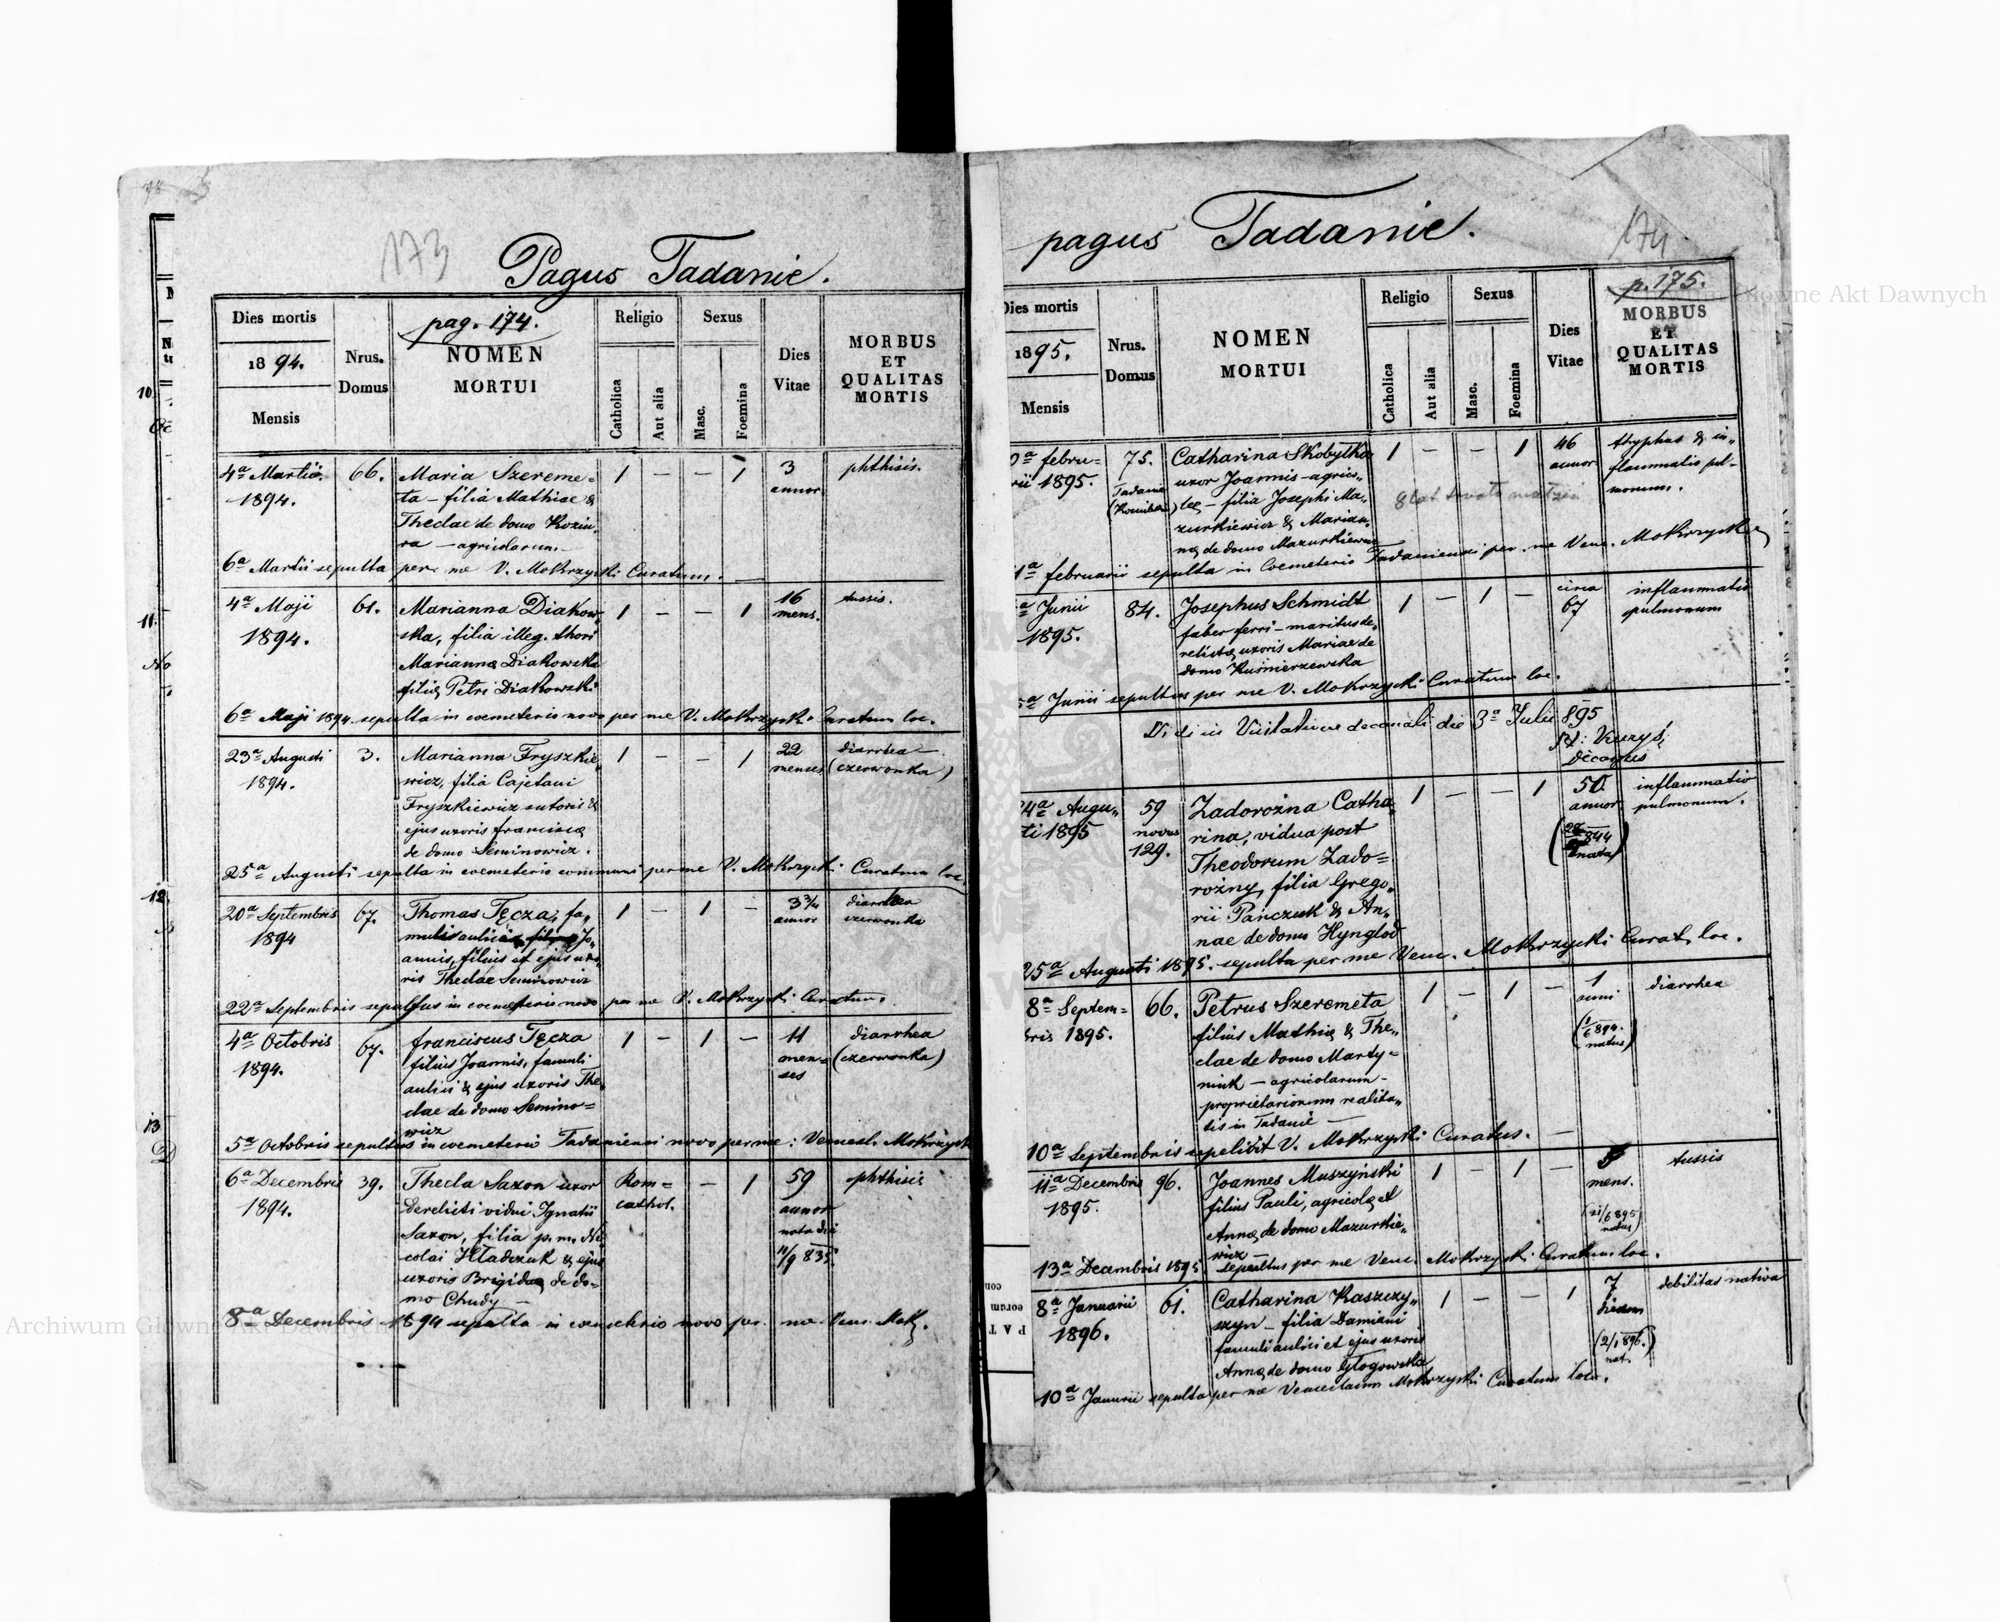 173
Pagus Tadanie.
Dies mortis
1894.
Mensis
Nrus.
Domus
pag. 174.
NOMEN
MORTUI
Religio
Catholica
Aut alia
Sexus
Masc.
Foemina
Dies
Vitae
MORBUS
ET
QUALITAS
MORTIS
4a Martii
1894.
66.
Maria Szereme-
ta - filia Mathiae &
Theclae de domo
ra - agricolarum.
1 - - 1
3
annor
phthisis.
6a Martii sepulta per me V. Mokrzycki Curatum.
4a Maji
1894.
61.
Marianna Diakow-
ska, filia illeg. thori
Marianna Diakowska
filia Petri Diakowski
1 - - 1
16
mens.
tussis.
6a Maji 1894. sepulta in coemeterio novo per me V. Mokrzycki Curatum loc.
23a Augusti
1894.
3.
Marianna Fryszkie-
wicz, filia Cajetani
Fryszkiewicz sutoris &
ejus uxoris francisca
de domo Seminowicz.
1 - - 1
22
menses
diarrhea
(czerwonka)
25a Augusti sepulta in coemeterio communi per me V. Mokrzycki Curatum loc.
20a Septembris
1894
67.
Thomas Tęcza, fa-
muli aulici Jo-
annis, filius et ejus uxo-
ris Theclae Seminowicz
1 - 1 -
3 3/4
annor
diarrhea
czerwonka
22a Septembris sepultus in coemeterio novo per me V. Mokrzycki Curatum.
4a Octobris
1894.
67.
franciscus Tęcza
filius Joannis, famuli
aulici & ejus uxoris The-
clae de domo Semino-
wicz
1 - 1 -
11
men-
ses
diarrhea
(czerwonka)
5a Octobris sepultus in coemeterio Tadaniensi novo per me: Vencesl. Mokrzycki
6a Decembris
1894.
39.
Thecla Saxon uxor
derelicti vidui Ignatii
Saxon, filia p. m. Ni
colai Hładczuk & ejus
uxoris Brigidae de do-
mo Chudy -
Rom-
cathol.
- 1
59
annor
nata die
11/9 835
phthisis
8a Decembris 1894 sepulta in coemeterio novo per me Venc. Mok.
pagus Tadanie.
174
p. 175.
Dies mortis
1895.
Mensis
Nrus.
Domus
NOMEN
MORTUI
Religio
Catholica
Aut alia
Sexus
Masc.
Foemina
Dies
Vitae
MORBUS
ET
QUALITAS
MORTIS
febru-
rii 1895.
75.
Tadanie
Catharina Skobytko
uxor Joannis - agrico-
lae - filia Josephi Ma-
zurkiewicz & Marian-
na de domo Mazurkiewicz
1 - - 1
46
annor
thyphus & in-
flammatio pul-
monum.
1a februarii sepulta in Coemeterio Tadaniensi per me Venc. Mokrzycki
Junii
1895.
84.
Josephus Schmidt
faber ferri - maritus de-
relicta uxoris Mariae de
domo Kuśnierzewska
1 - 1 -
circa
67
inflammatio
pulmonum
Junii sepultus per me V. Mokrzycki Curatum loc.
Vidi in Visitatione decanali die 3a Julii 895
Decanus
24a Augu-
ti 1895
59
novus
129.
Zadorożna Catha-
rina, vidua post
Theodorum Zado-
rożny, filia Grego-
rii Pańczuk & An-
nae de domo Hynglod
1 - - 1
50
annor
844
nata
inflammatio
pulmonum.
25a Augusti 1895. sepulta per me Venc. Mokrzycki Curat. loc.
8a Septem-
bris 1895.
66.
Petrus Szeremeta
filius Mathia & The-
clae de domo Marty-
niuk - agricolarum -
proprietariorum realita-
tis in Tadanie -
1 - 1 -
1
anni
(1/6 894.
natus)
diarrhea
10a Septembris sepelivit V. Mokrzycki Curatus.
11a Decembris
1895.
96.
Joannes Muszyński
filius Pauli, agricola et
Anna de domo Mazurkie-
wicz -
1 - 1 -
mens.
(21/6 895
natus)
tussis
13a Decembris 1895 sepultus per me Venc. Mokrzycki Curatum loc.
8a Januarii
1896.
61.
Catharina Kaszczy-
szyn - filia Damiani
famuli aulici et ejus uxoris
Anna de domo Głogowska
1 - - 1
7
dierum
(2/1 896.
nat.
debilitas nativa
10a Januarii sepulta per me Venceslaum Mokrzycki Curatum loci.
Archiwum Główne Akt Dawnych